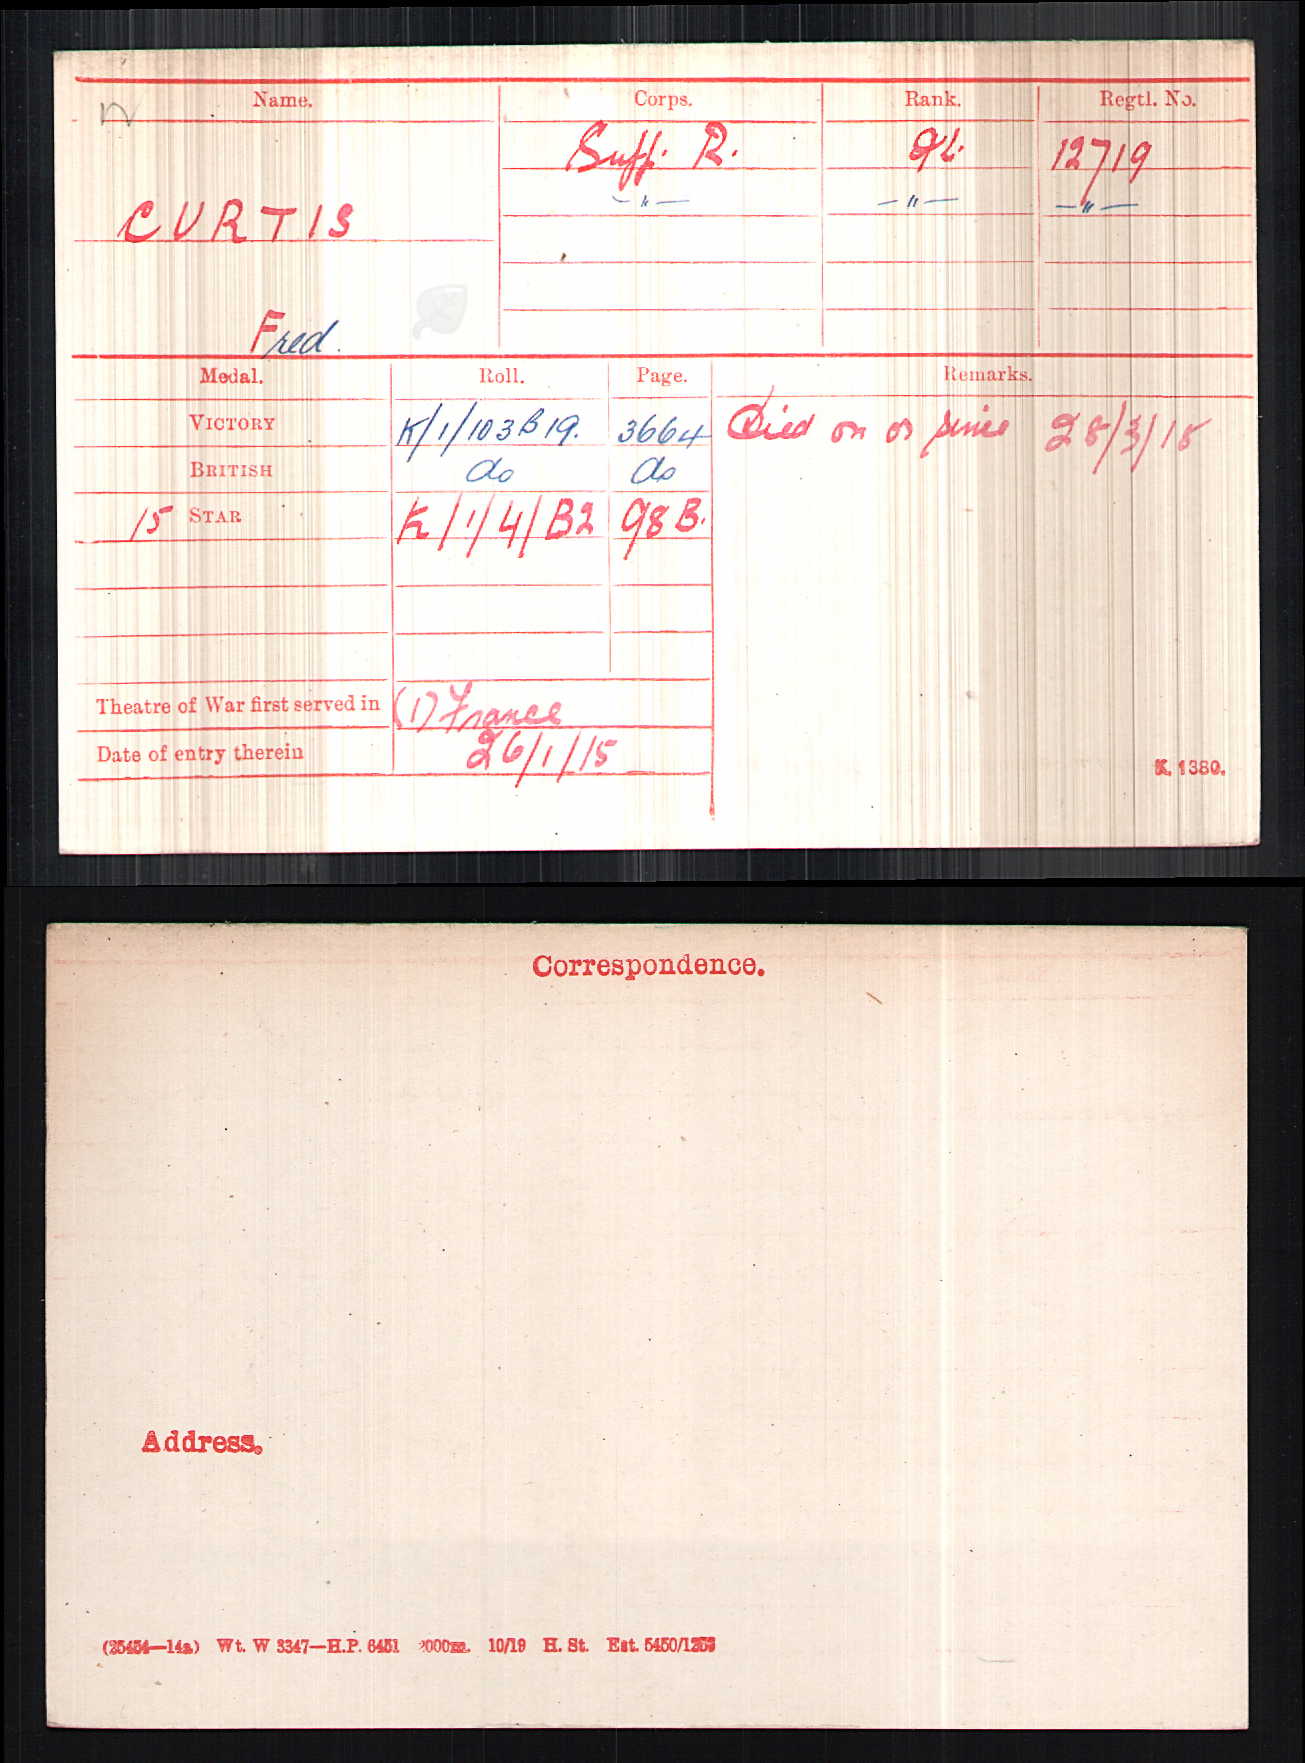 Name. Corps. Rank. Regtl. No.
Suff. R. Pt. 12719
— " — — " — — " —
CURTIS
Fred.
Medal. Roll. Page. Remarks.
VICTORY K/1/103 B 19. 3664 Died on or since 28/3/18
BRITISH do do
15 STAR K/1/4/B2 98 B.
Theatre of War first served in (1) France
Date of entry therein 26/1/15
K. 1380.
Correspondence.
Address.
(35454—14a) Wt. W 3347—H.P. 6451 10/19 H. St. Est. 5450/